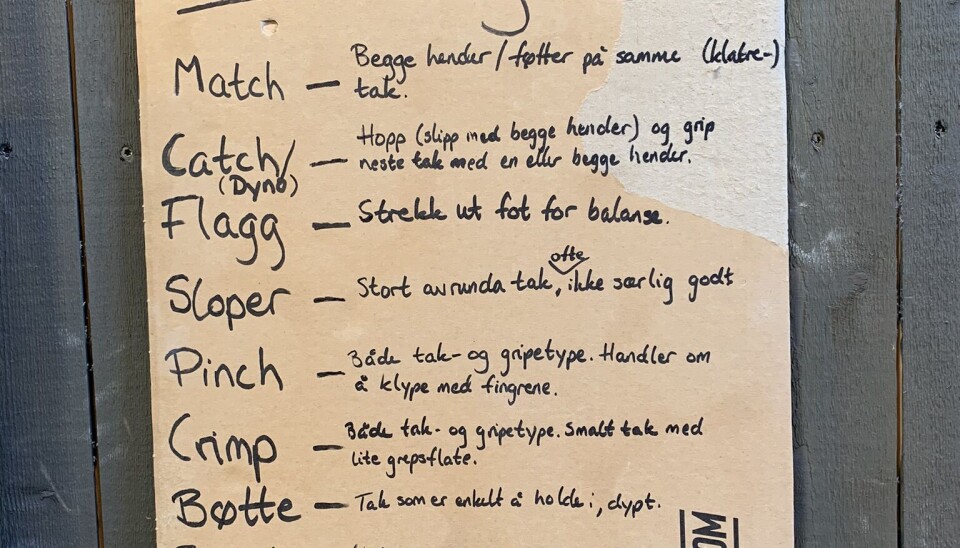 Match — Begge hender / føtter på samme (klatre-)
tak.
Catch/ — Hopp (slipp med begge hender) og grip
(Dyno) neste tak med en eller begge hender.
Flagg — Strekk ut fot for balanse.
ofte
Sloper — Stort avrunda tak, ikke særlig godt
Pinch — Både tak- og gripetype. Handler om
å klype med fingrene.
Crimp — Både tak- og gripetype. Smalt tak med
lite grepsflate.
Bøtte — Tak som er enkelt å holde i, dypt.
OM